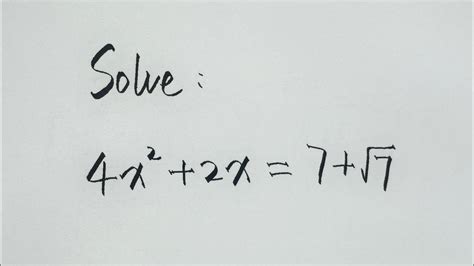 Solve:
4x² + 2x = 7 + √7